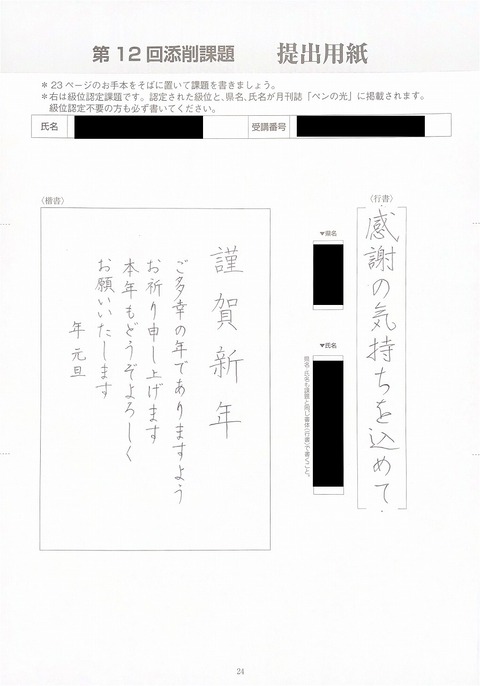 第12回添削課題　提出用紙
＊23ページのお手本をそばに置いて課題を書きましょう。
＊右は級位認定課題です。認定された級位と、県名、氏名が月刊誌「ペンの光」に掲載されます。
級位認定不要の方も必ず書いてください。
氏名
受講番号
〈行書〉
感謝の気持ちを込めて
▼県名
▼氏名
県名・氏名も課題と同じ書体（行書）で書くこと。
〈楷書〉
謹賀新年
ご多幸の年でありますよう
お祈り申し上げます
本年もどうぞよろしく
お願いいたします
年 元旦
24